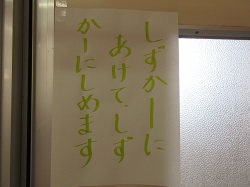 しずかーに
あけて、しず
かーにしめます